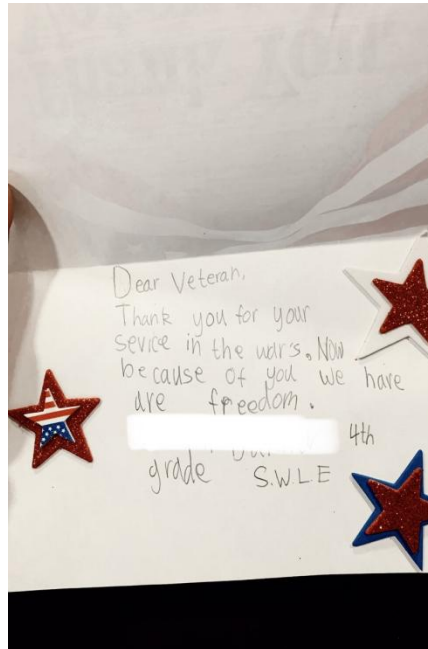 Dear Veteran,
Thank you for your
sevice in the war's. Now
because of you we have
are freedom.
4th
grade S.W.L.E